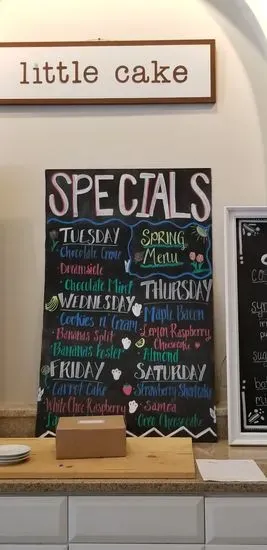 little cake
SPECIALS
TUESDAY
Chocolate Creme
Dreamsicle
Chocolate Mint
SPRING
Menu
WEDNESDAY
Cookies n' Cream
Bananas Split
Bananas Foster
THURSDAY
Maple Bacon
Lemon Raspberry
Cheesecake
Almond
FRIDAY
Carrot Cake
White Choc Raspberry
SATURDAY
Strawberry Shortcake
Samoa
Oreo Cheesecake